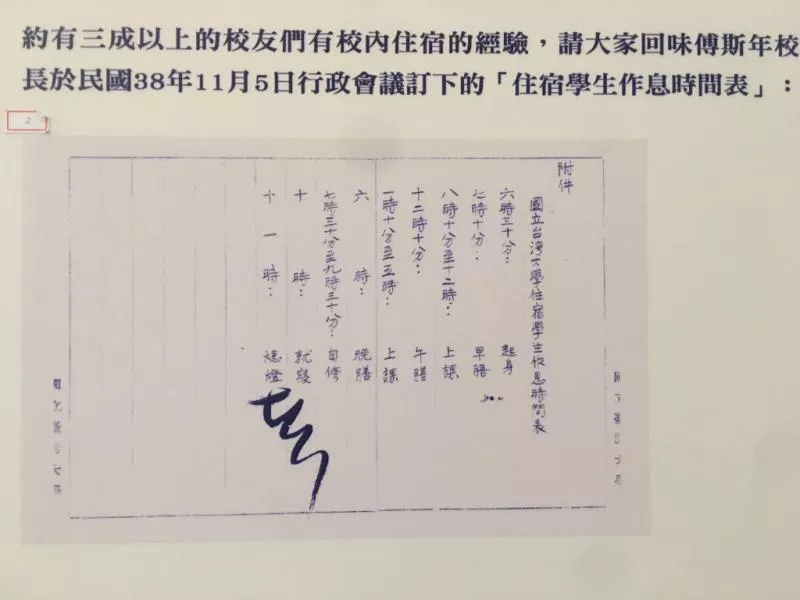 約有三成以上的校友們有校內住宿的經驗，請大家回味傅斯年校
長於民國38年11月5日行政會議訂下的「住宿學生作息時間表」：
2
附件
國立台湾大學住宿學生作息時間表
六時三十分： 起身
七時十分： 早膳
八時十分至十二時： 上課
十二時十分： 午膳
一時十分至五時： 上課
六時： 晚膳
七時三十分至九時三十分： 自修
十時： 就寢
十一時： 熄燈